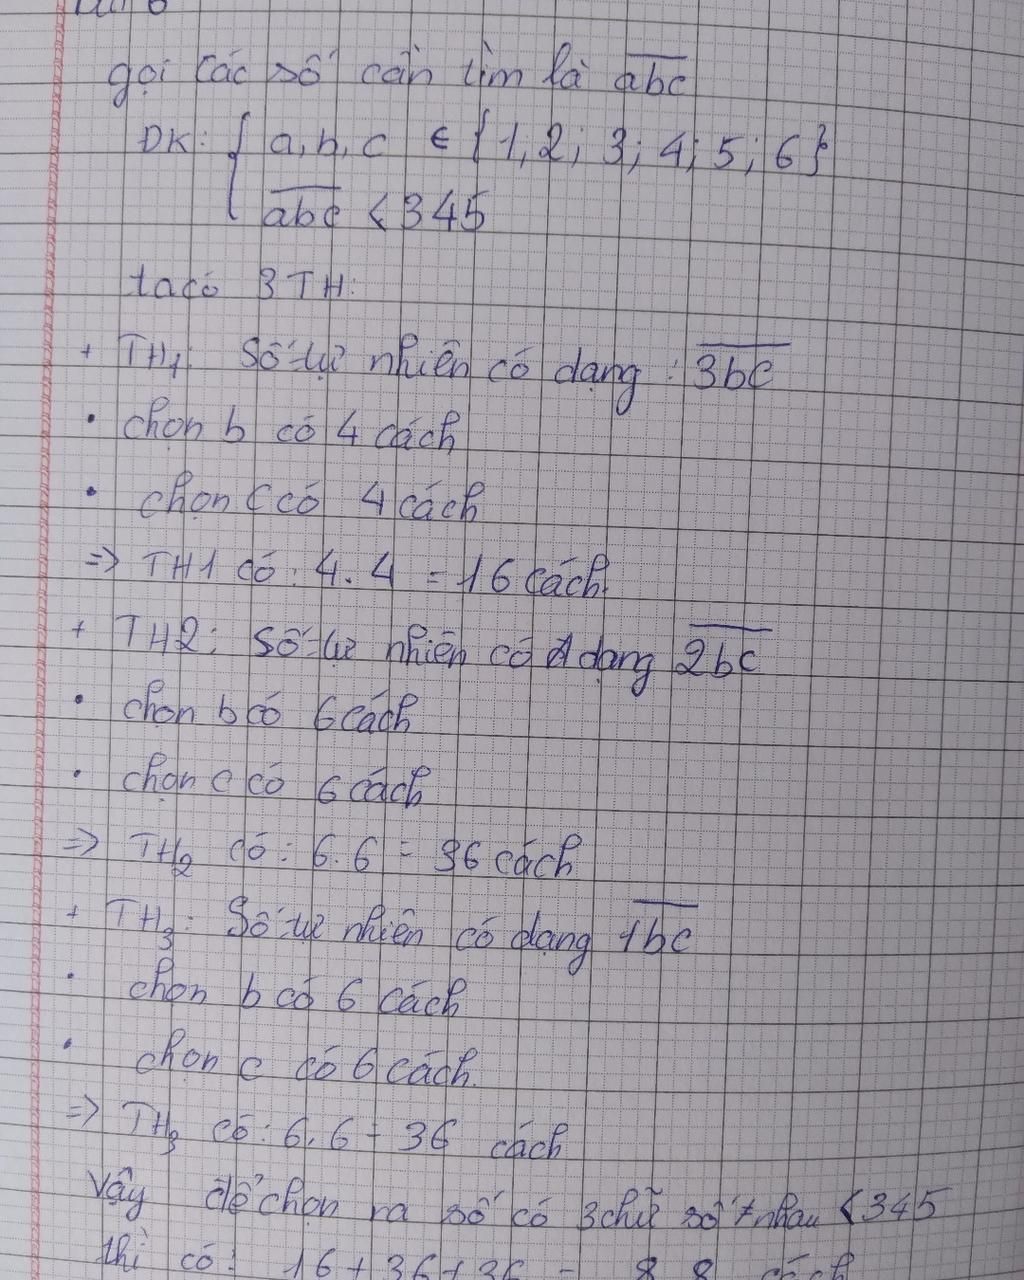 gọi các số cần tìm là abc
ĐK: { a, b, c ∈ {1, 2; 3; 4; 5; 6}
abc < 345
ta có 3 TH:
+ TH1: Số tự nhiên có dạng: 3bc
• chọn b có 4 cách
• chọn c có 4 cách
=> TH1 có: 4.4 = 16 cách.
+ TH2: Số tự nhiên có dạng 2bc
• chọn b có 6 cách
• chọn c có 6 cách
=> TH2 có: 6.6 = 36 cách
+ TH3: Số tự nhiên có dạng 1bc
• chọn b có 6 cách
• chọn c có 6 cách.
=> TH3 có: 6.6 = 36 cách
Vậy để chọn ra số có 3 chữ số ≠ nhau < 345
thì có: 16 + 36 + 36 = 88 cách